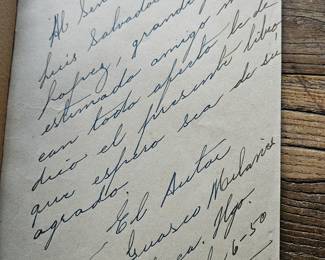 Al Señ
Luis Salvador
Lopez, grande y
estimado amigo
con todo afecto le de
dico el presente libro
que espero sea de su
agrado.
El Autor
Hgo.
6-50